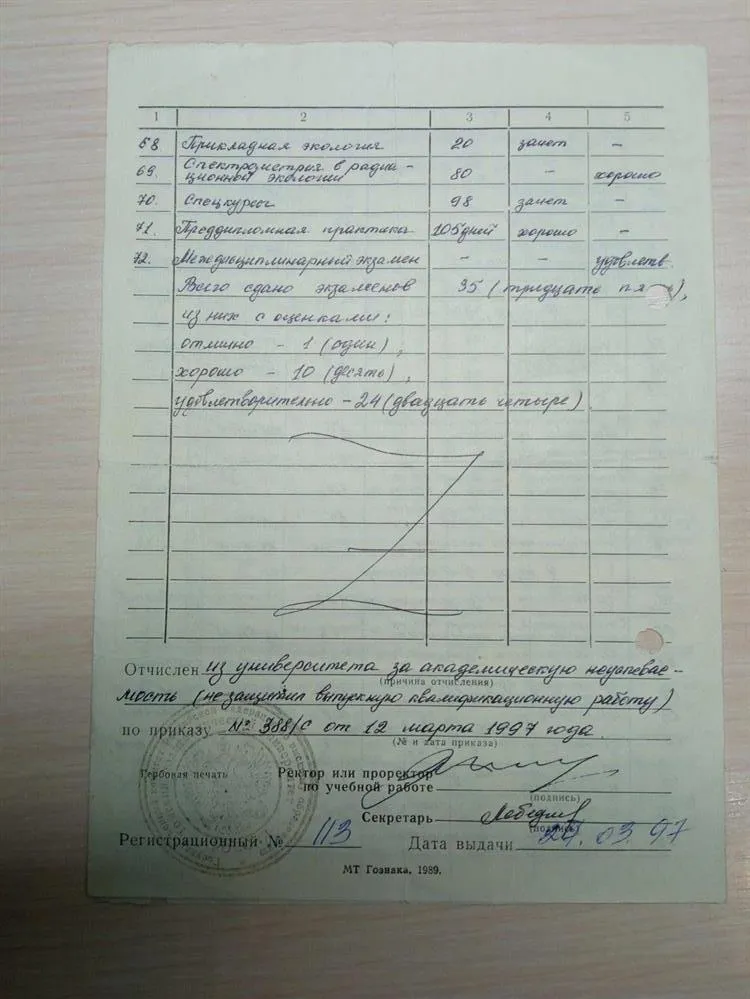 1 2 3 4 5
68 Прикладная экология 20 зачет -
69. Спектрометрия в радиа-
ционной экологии 80 - хорошо
70. Спецкурсы 98 зачет -
71. Преддипломная практика 105 дней хорошо -
72. Междисциплинарный экзамен - - удовлетв.
Всего сдано экзаменов 35 (тридцать пять),
из них с оценками:
отлично - 1 (один),
хорошо - 10 (десять),
удовлетворительно - 24 (двадцать четыре)
Отчислен из университета за академическую неуспевае-
(причина отчисления)
мость (не защитил выпускную квалификационную работу)
по приказу № 388/с от 12 марта 1997 года.
(№ и дата приказа)
Гербовая печать
Ректор или проректор
по учебной работе
(подпись)
Секретарь
(подпись)
Регистрационный № 113 Дата выдачи 24.03.97
МТ Гознака. 1989.